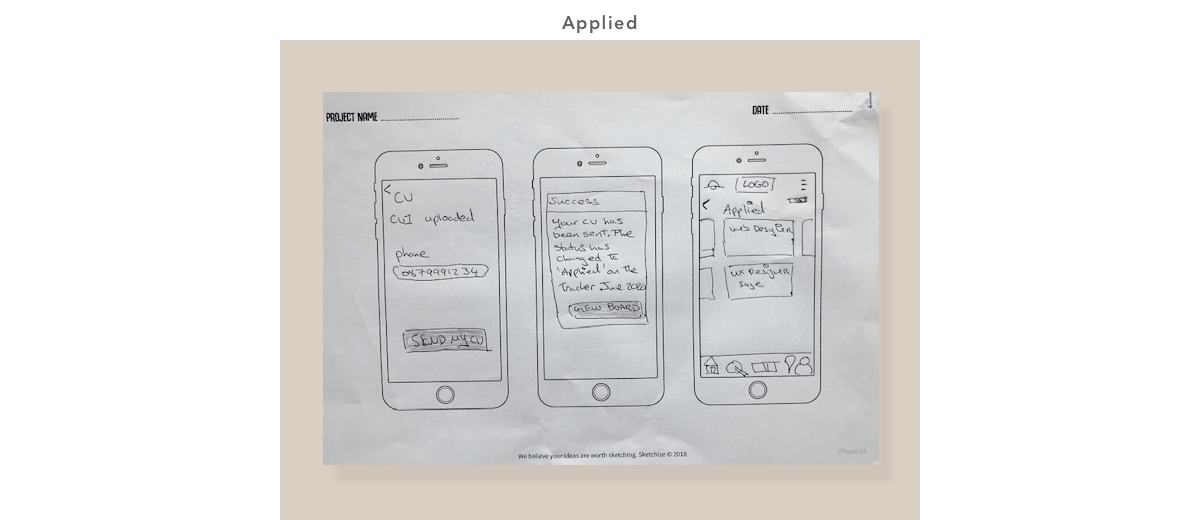 Applied
PROJECT NAME
DATE
< CV
CV1 uploaded
phone
0879991234
SEND MY CV
Success
Your CV has
been sent. The
status has
changed to
'Applied' on the
Tracker June 2020
VIEW BOARD
LOGO
< Applied
Web Designer
UX Designer
Sage
We believe your ideas are worth sketching. Sketchize © 2018
iPhone 6S